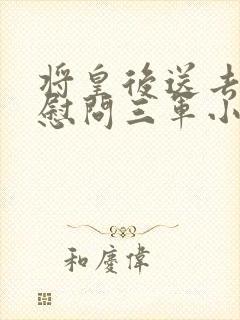 将皇後送去
慰問三軍小
和慶偉